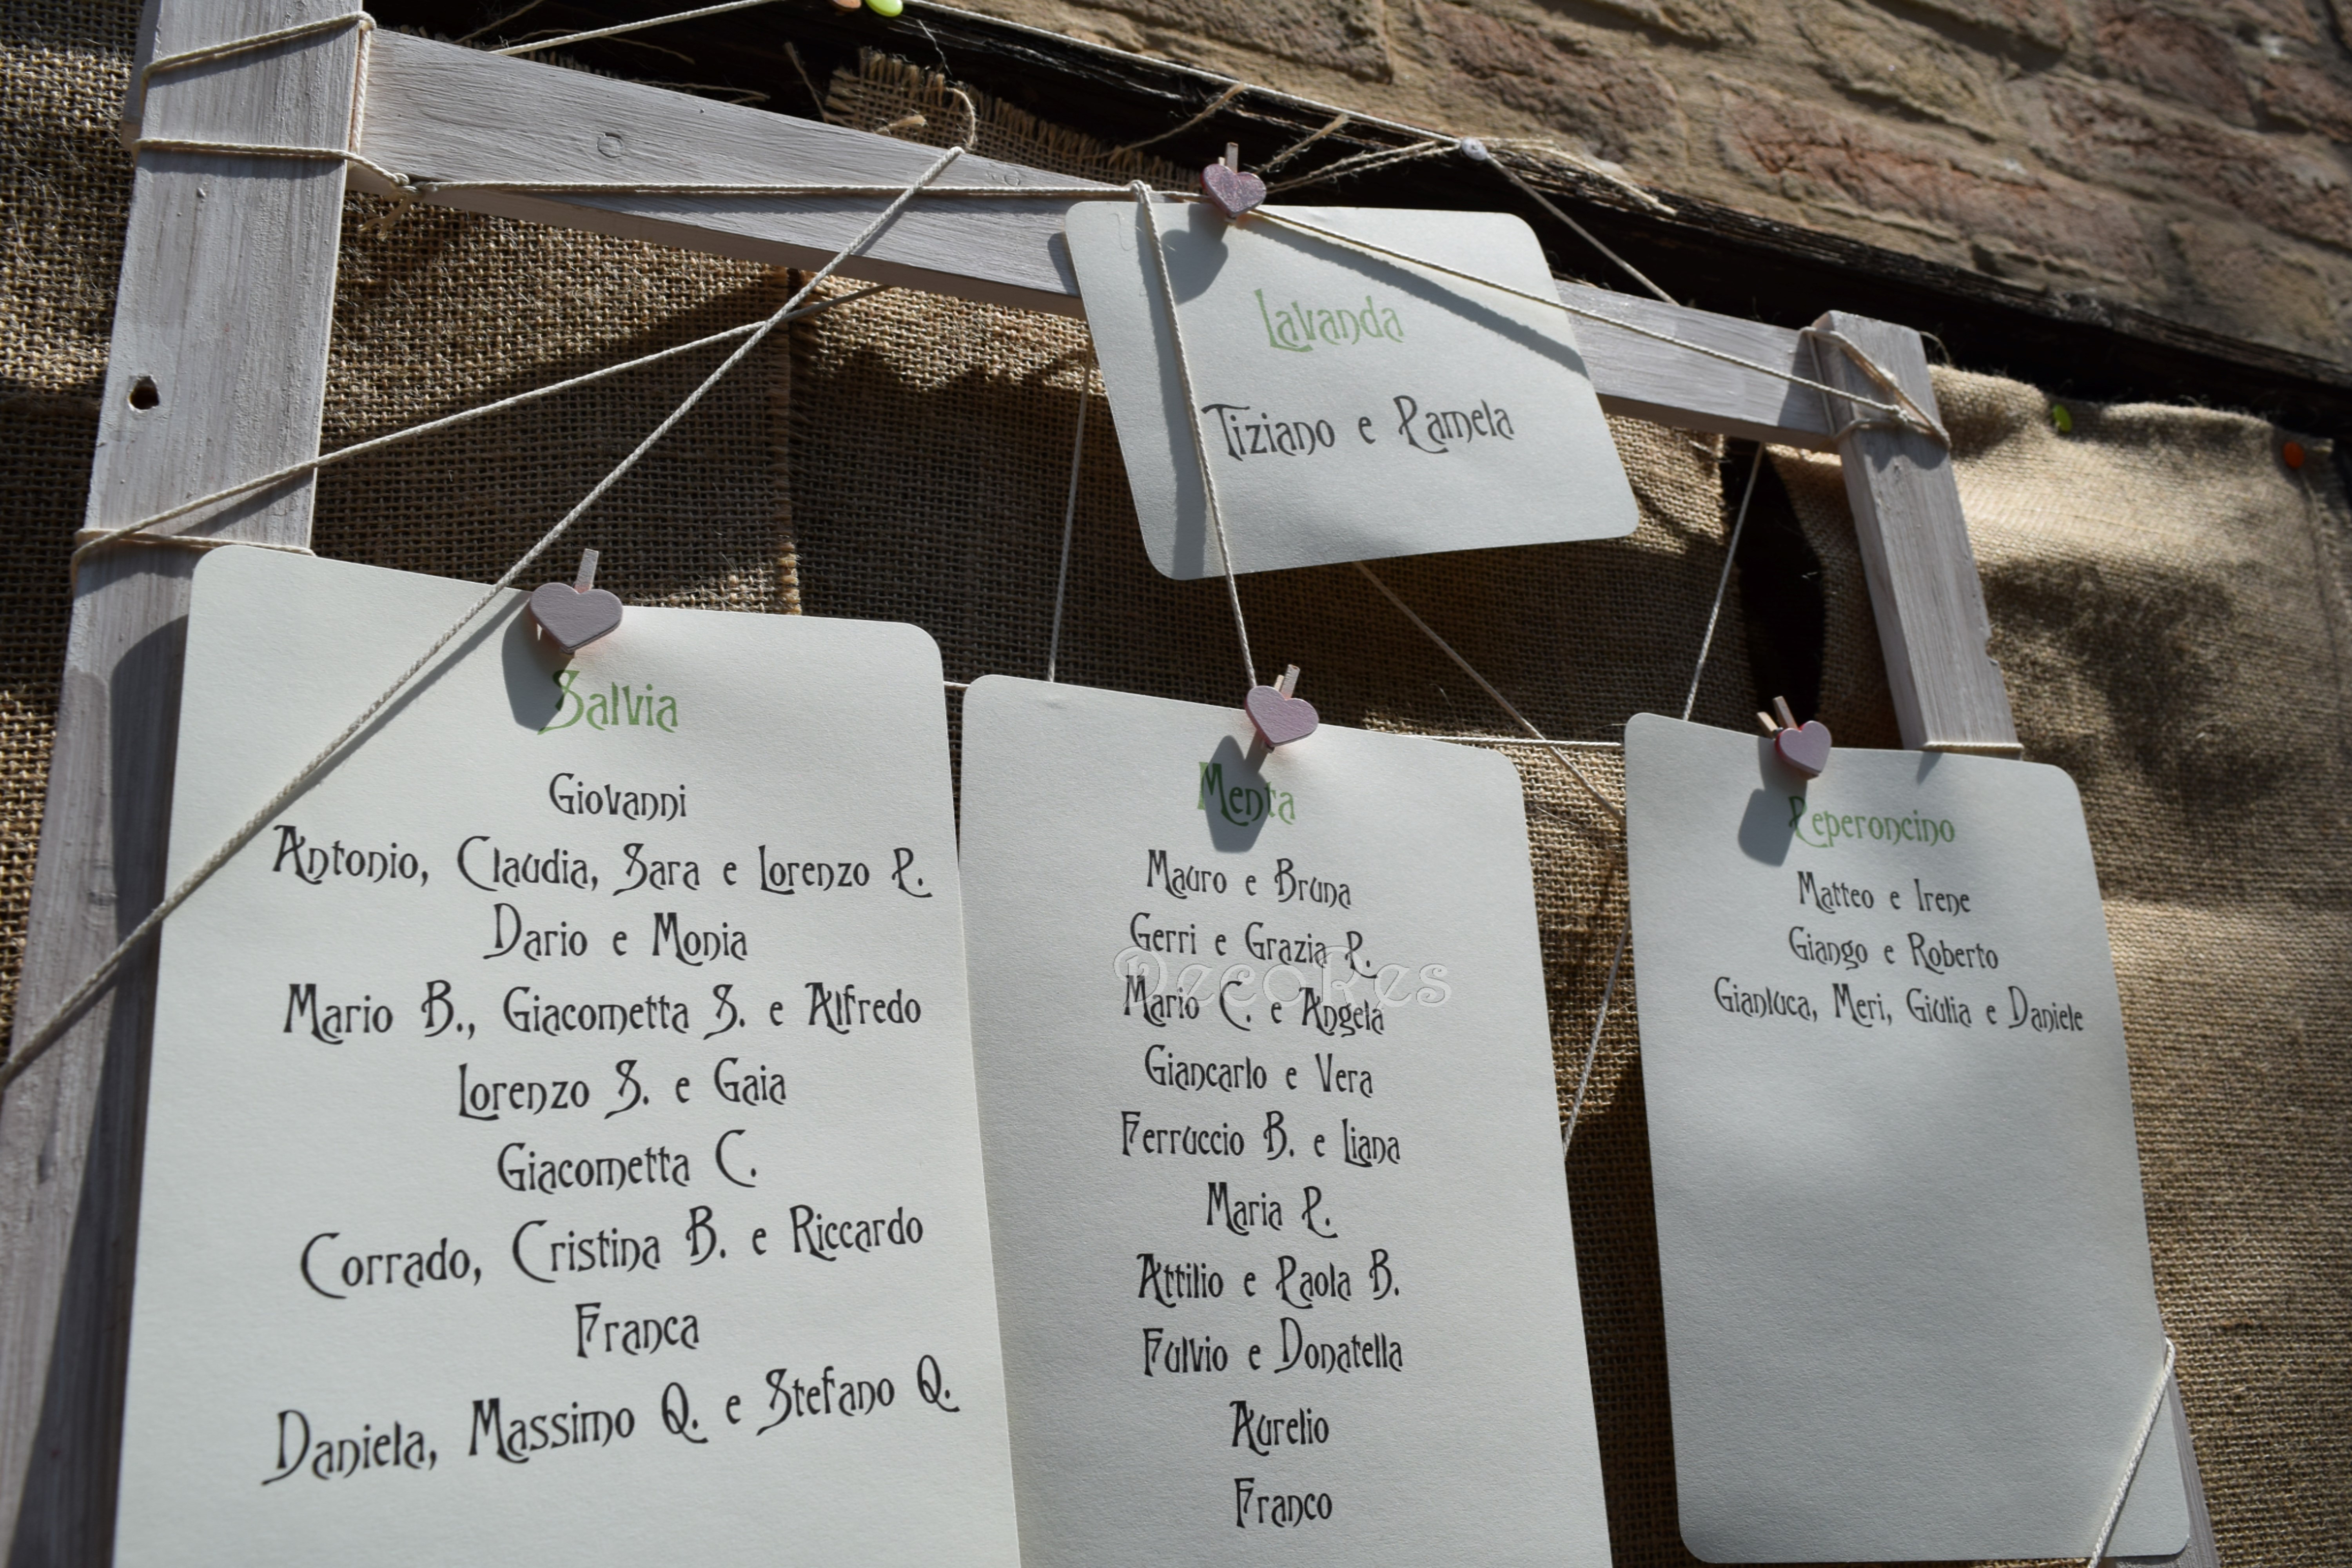 Lavanda
Tiziano e Pamela
Salvia
Giovanni
Antonio, Claudia, Sara e Lorenzo P.
Dario e Monia
Mario B., Giacometta S. e Alfredo
Lorenzo S. e Gaia
Giacometta C.
Corrado, Cristina B. e Riccardo
Franca
Daniela, Massimo Q. e Stefano Q.
Menta
Mauro e Bruna
Gerri e Grazia P.
DecoRes
Mario C. e Angela
Giancarlo e Vera
Ferruccio B. e Liana
Maria P.
Attilio e Paola B.
Fulvio e Donatella
Aurelio
Franco
Peperoncino
Matteo e Irene
Giango e Roberto
Gianluca, Meri, Giulia e Daniele